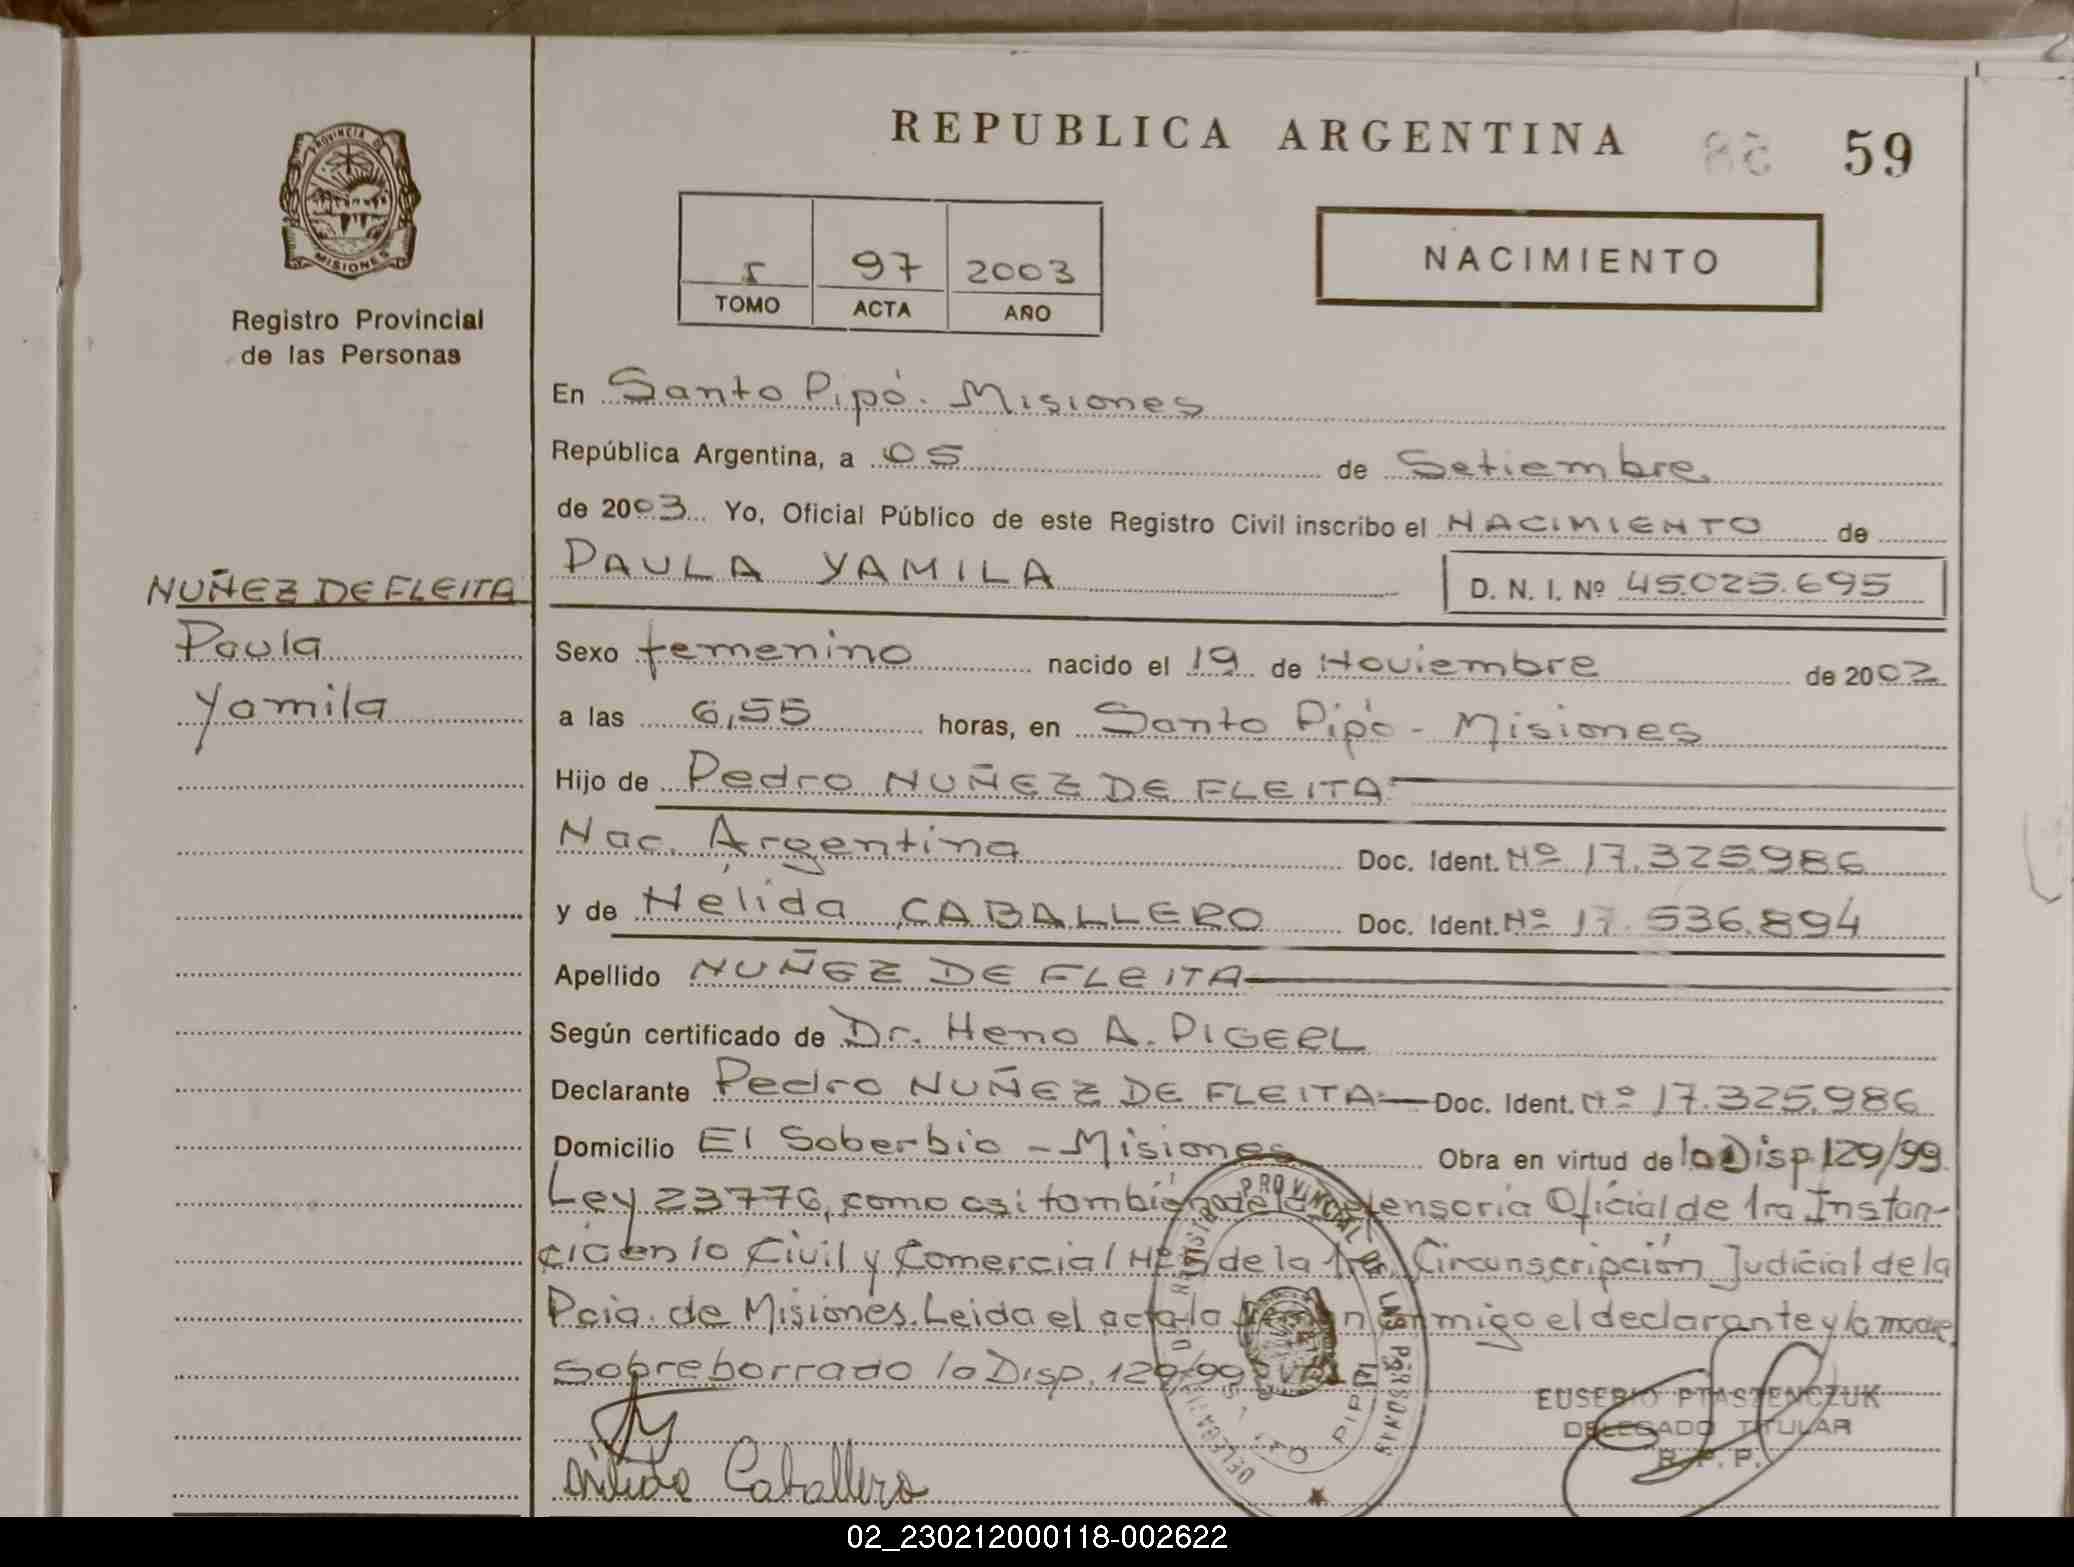 REPUBLICA ARGENTINA
59
PROVINCIA DE
MISIONES
Registro Provincial
de las Personas
5 97 2003
TOMO ACTA AÑO
NACIMIENTO
En Santo Pipó. Misiones
República Argentina, a 05 de Setiembre
de 2003 Yo, Oficial Público de este Registro Civil inscribo el NACIMIENTO de
PAULA YAMILA D. N. I. Nº 45.025.695
NUÑEZ DE FLEITA
Paula
Yamila
Sexo femenino nacido el 19 de Noviembre de 2002
a las 6,55 horas, en Santo Pipó - Misiones
Hijo de Pedro NUÑEZ DE FLEITA
Nac. Argentina Doc. Ident. Nº 17.325986
y de Nelida CABALLERO Doc. Ident. Nº 17.536.894
Apellido NUÑEZ DE FLEITA
Según certificado de Dr. Heno A. PIGERL
Declarante Pedro NUÑEZ DE FLEITA Doc. Ident. Nº 17.325.986
Domicilio El Soberbio - Misiones Obra en virtud de la Disp 129/99
Ley 23776, como asi también de la Defensoria Oficial de 1ra Instan-
cia en lo Civil y Comercial Nº 5 de la 1ra Circunscripción Judicial de la
Pcia. de Misiones. Leida el acta la firman conmigo el declarante y la madre
Sobreborrado la Disp. 129/99 VALE
REGISTRO PROVINCIAL DE LAS PERSONAS
DELEGACION
PIPO
EUSEBIO PTASZENCZUK
DELEGADO TITULAR
R. P. P.
Nélida Caballero
02_230212000118-002622